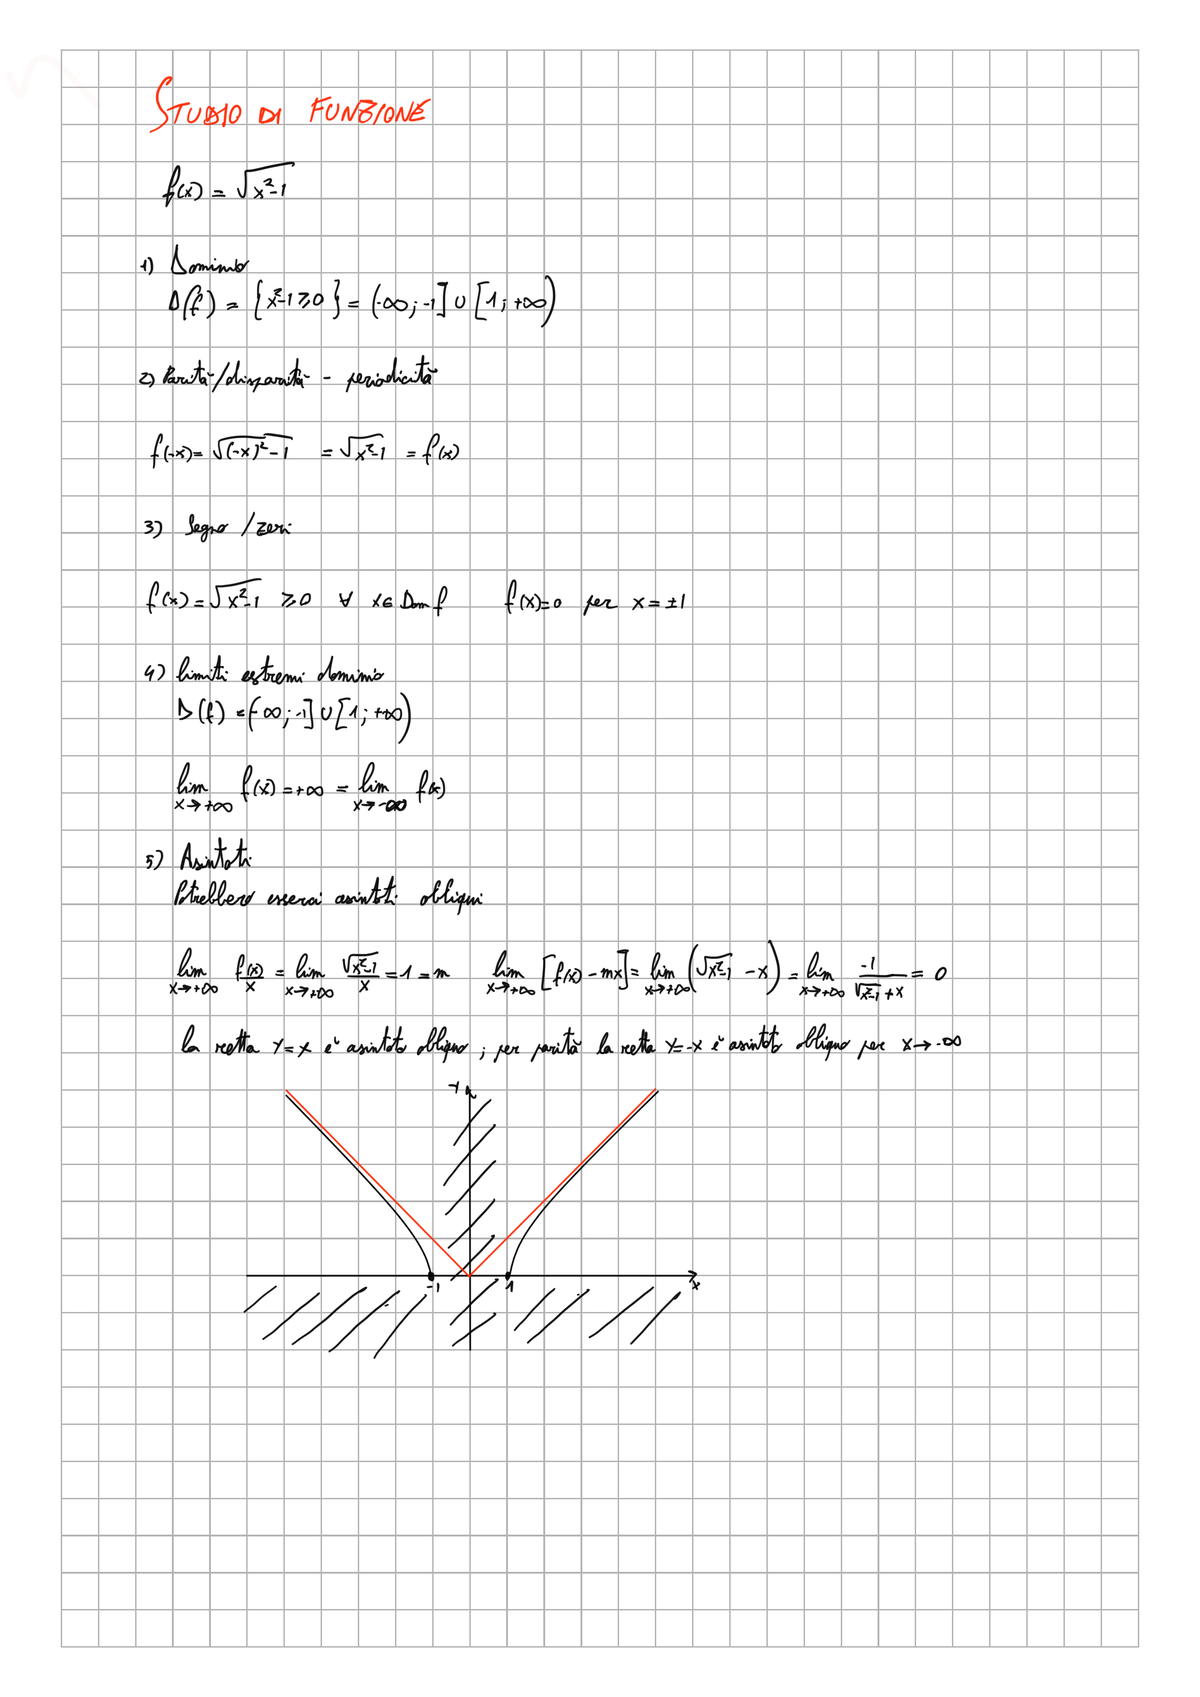 STUDIO DI FUNZIONE
f(x) = √(x²-1)
1) Dominio
D(f) = {x²-1≥0} = (-∞; -1] ∪ [1; +∞)
2) Parità/disparità - periodicità
f(-x) = √((-x)²-1) = √(x²-1) = f(x)
3) Segno / zeri
f(x) = √(x²-1) ≥0 ∀ x∈Dom f f(x)=0 per x = ±1
4) limiti estremi dominio
D(f) = (-∞; -1] ∪ [1; +∞)
lim x→+∞ f(x) = +∞ = lim x→-∞ f(x)
5) Asintoti
Potrebbero esserci asintoti obliqui
lim x→+∞ f(x)/x = lim x→+∞ √(x²-1)/x = 1 = m lim x→+∞ [f(x) - mx] = lim x→+∞ (√(x²-1) - x) = lim x→+∞ -1/(√(x²-1) + x) = 0
la retta y=x è asintoto obliquo ; per parità la retta y=-x è asintoto obliquo per x→-∞
y
-1 1 x